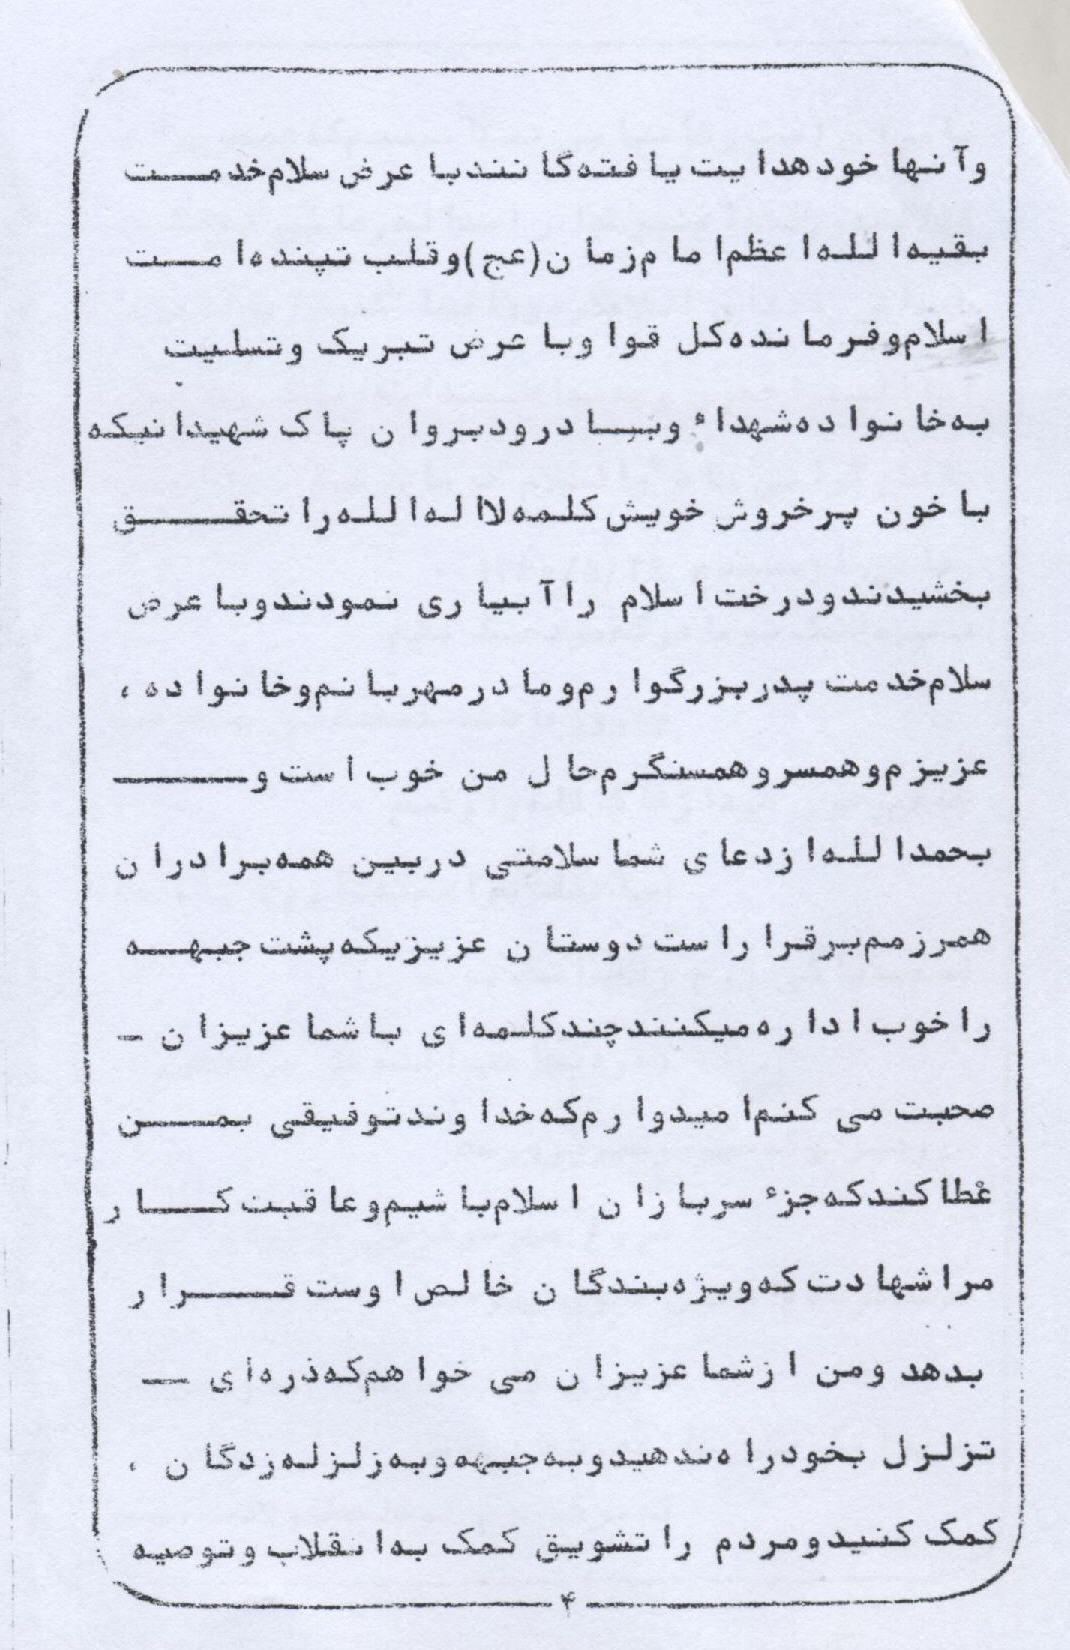 وآنها خود هدایت یافته گانند با عرض سلام خدمــت
بقیه الله اعظم امام زمان (عج) و قلب تپنده امــت
اسلام و فرمانده کل قوا و با عرض تبریک و تسلیت
به خانواده شهداء و بــا درود بر وان پاک شهیدانیکه
با خون پر خروش خویش کلمه لااله الله را تحقــق
بخشیدند و درخت اسلام را آبیاری نمودند و با عرض
سلام خدمت پدر بزرگوارم و مادر مهربانم و خانواده ،
عزیزم و همسر و همسنگرم حال من خوب است و ــــ
بحمدالله از دعای شما سلامتی در بین همه برادران
همرزمم برقرار است دوستان عزیزیکه پشت جبهــه
را خوب اداره میکنند چند کلمه ای با شما عزیزان ـ
صحبت می کنم امیدوارم که خداوند توفیقی بمــن
عطا کند که جزء سربازان اسلام باشیم و عاقبت کــار
مرا شهادت که ویژه بندگان خالص اوست قــرار
بدهد و من از شما عزیزان می خواهم که ذره ای ــ
تزلزل بخود راه ندهید و به جبهه و به زلزله زدگان .
کمک کنید و مردم را تشویق کمک به انقلاب و توصیه
۴